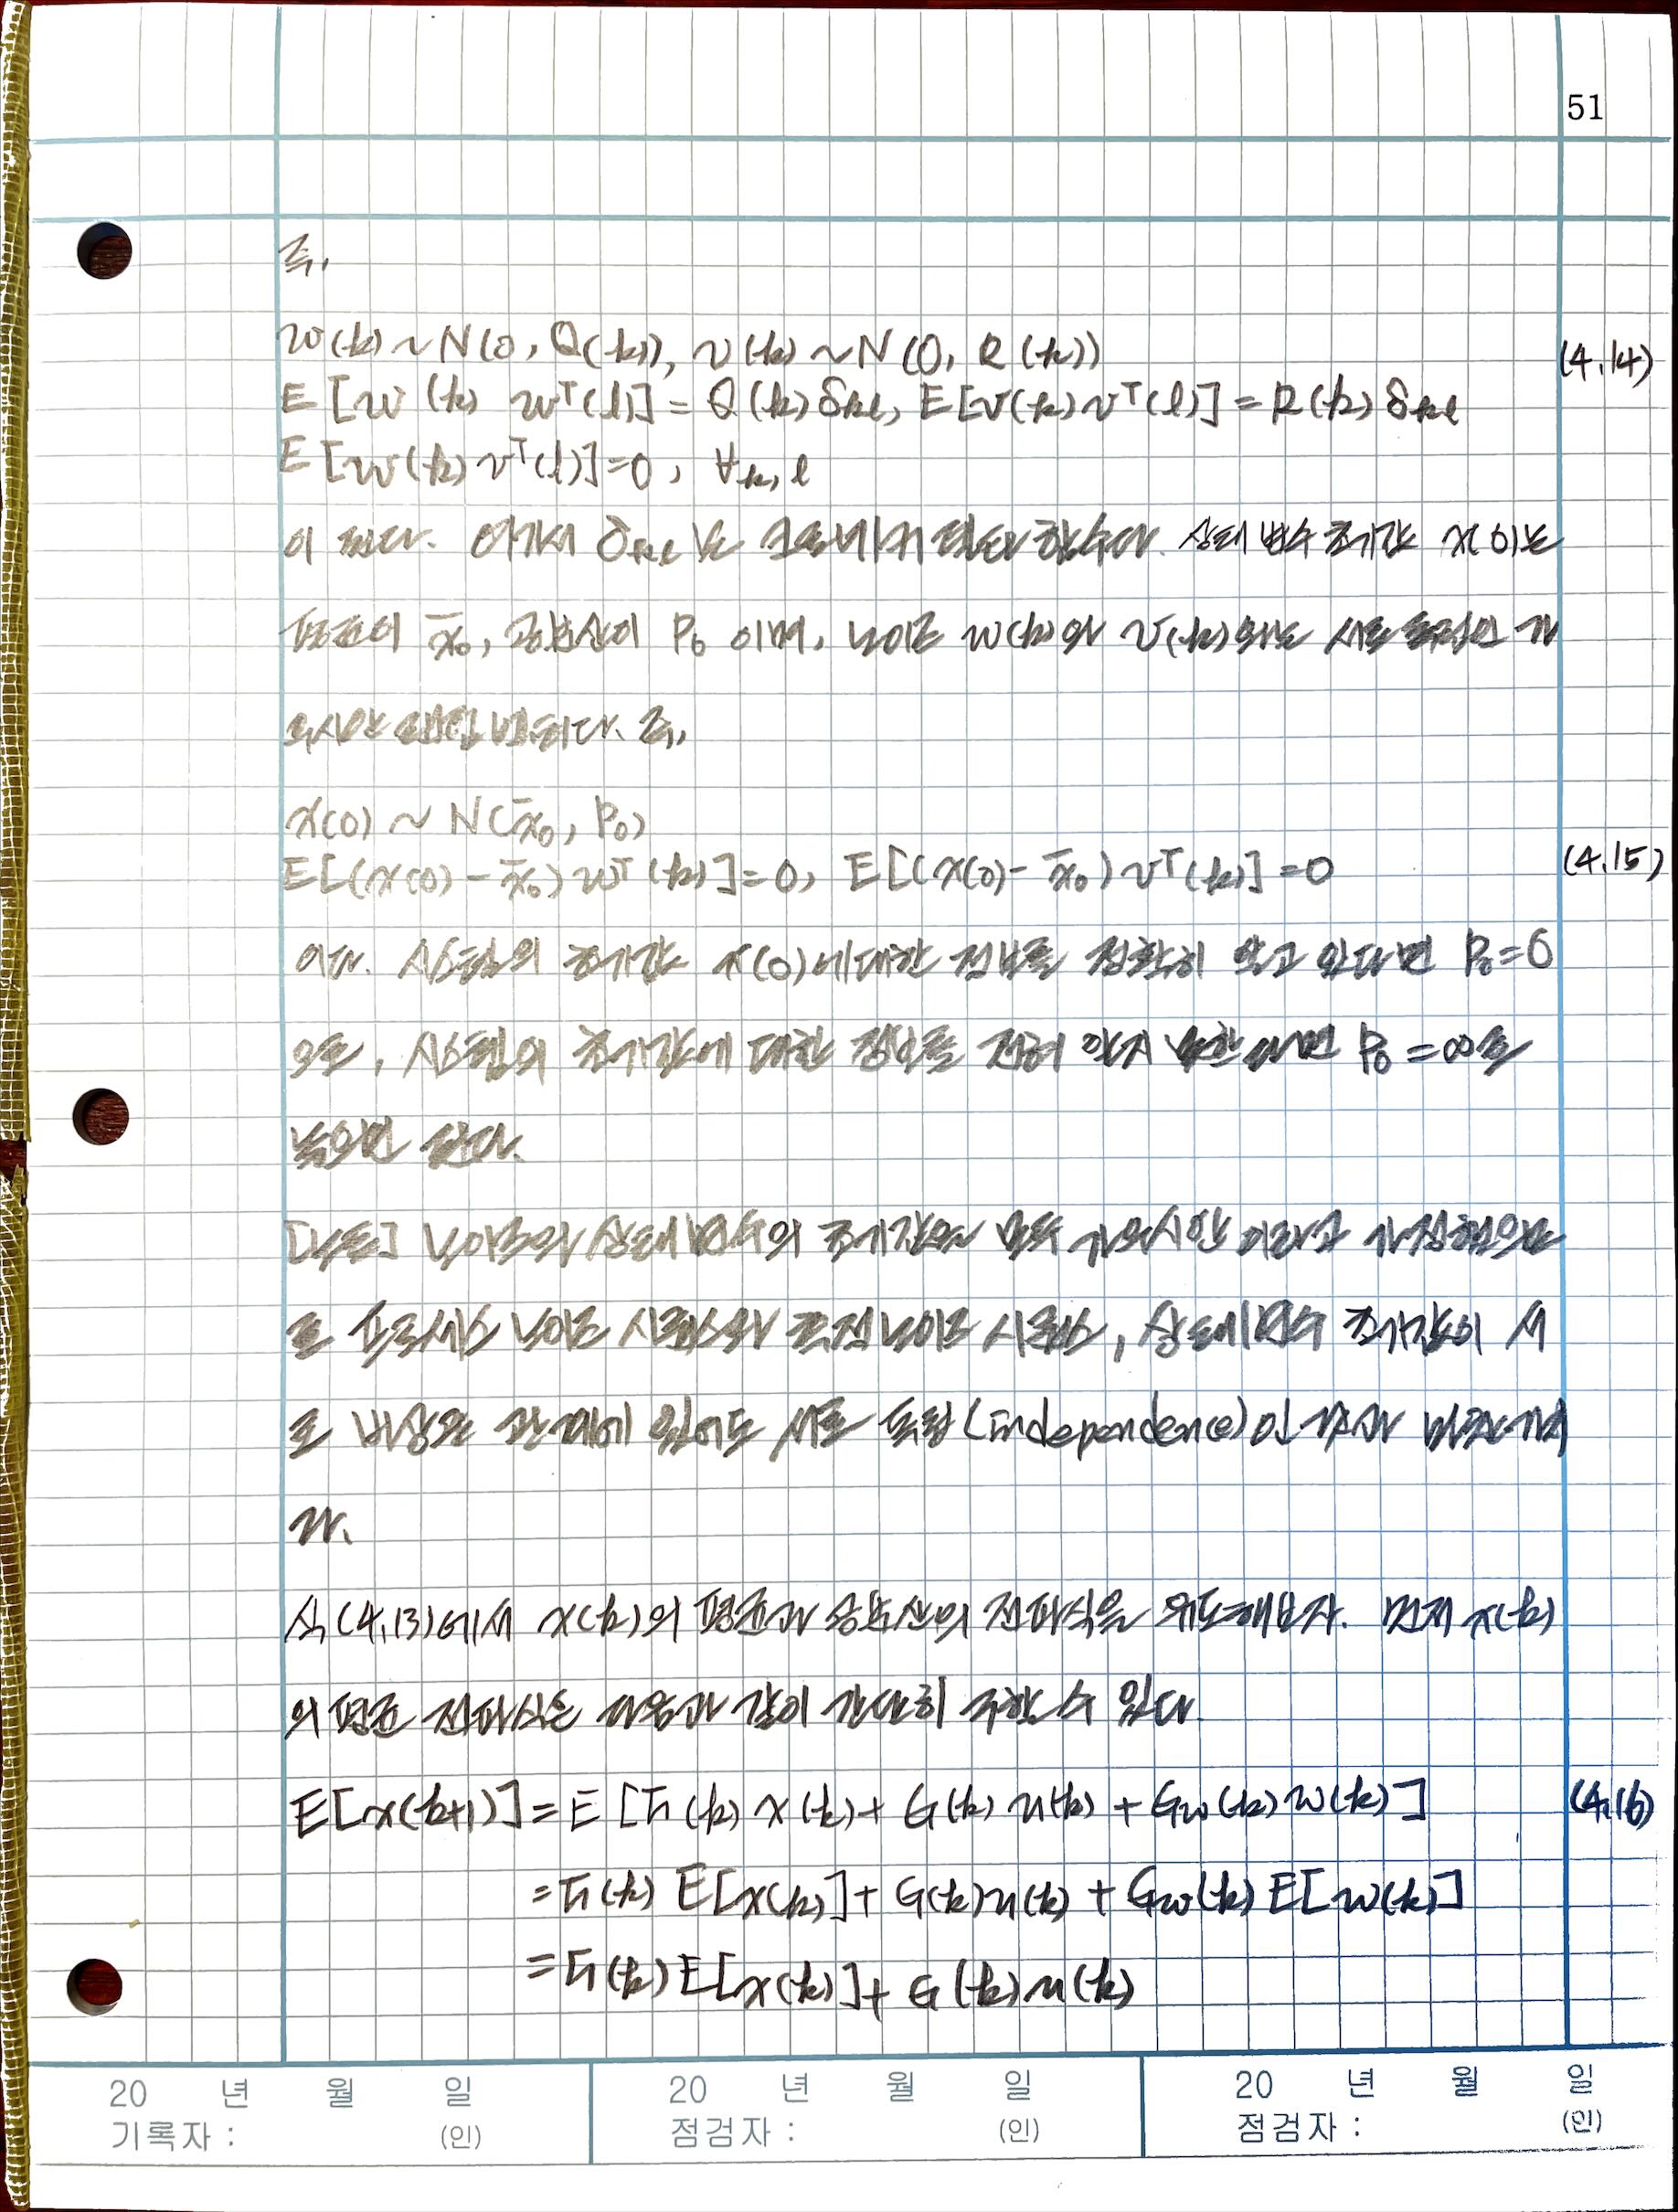 51
즉,
w(k) ~ N(0, Q(k)), v(k) ~ N(0, R(k)) (4.14)
E[w(k) wᵀ(l)] = Q(k) δₖₗ, E[v(k) vᵀ(l)] = R(k) δₖₗ
E[w(k) vᵀ(l)] = 0, ∀k, l
이 된다. 여기서 δₖₗ는 크로네커 델타 함수다. 상태 변수 초기값 x(0)는
평균이 x̄₀, 공분산이 P₀ 이며, 노이즈 w(k)와 v(k)와는 서로 독립인 가
우시안 랜덤 변수다. 즉,
x(0) ~ N(x̄₀, P₀)
E[(x(0) - x̄₀) wᵀ(k)] = 0, E[(x(0) - x̄₀) vᵀ(k)] = 0 (4.15)
이다. 시스템의 초기값 x(0)에 대한 정보를 정확히 알고 있다면 P₀ = 0
으로, 시스템의 초기값에 대한 정보를 전혀 알지 못한다면 P₀ = ∞로
놓으면 된다.
[노트] 노이즈와 상태변수의 초기값은 모두 가우시안 이라고 가정했으므
로 프로세스 노이즈 시퀀스와 측정 노이즈 시퀀스, 상태변수 초기값이 서
로 비상관 관계에 있어도 서로 독립(independence)인 것과 마찬가지
다.
식(4.13)에서 x(k)의 평균과 공분산의 전파식을 유도해보자. 먼저 x(k)
의 평균 전파식은 다음과 같이 간단히 구할 수 있다.
E[x(k+1)] = E[F(k) x(k) + G(k) u(k) + G_w(k) w(k)] (4.16)
= F(k) E[x(k)] + G(k) u(k) + G_w(k) E[w(k)]
= F(k) E[x(k)] + G(k) u(k)
20 년 월 일 20 년 월 일 20 년 월 일
기록자 : (인) 점검자 : (인) 점검자 : (인)